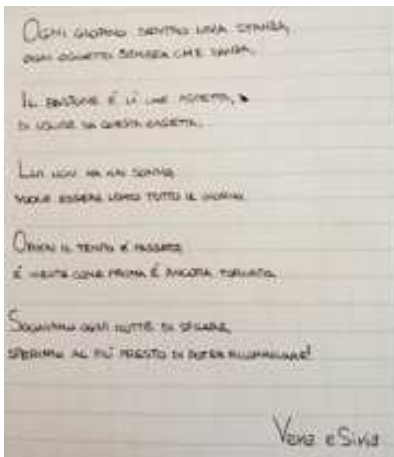 OGNI GIORNO DENTRO UNA STANZA,
OGNI OGGETTO SEMBRA CHE DANZA.
IL BASTONE È LÌ CHE ASPETTA,
DI USCIRE DA QUESTA CASETTA.
LUI NON HA MAI SONNO
VUOLE ESSERE USATO TUTTO IL GIORNO.
ORMAI IL TEMPO È PASSATO
E NIENTE COME PRIMA È ANCORA TORNATO.
SOGNIAMO OGNI NOTTE DI SFILARE,
SPERIAMO AL PIÙ PRESTO DI POTER
e Silvia